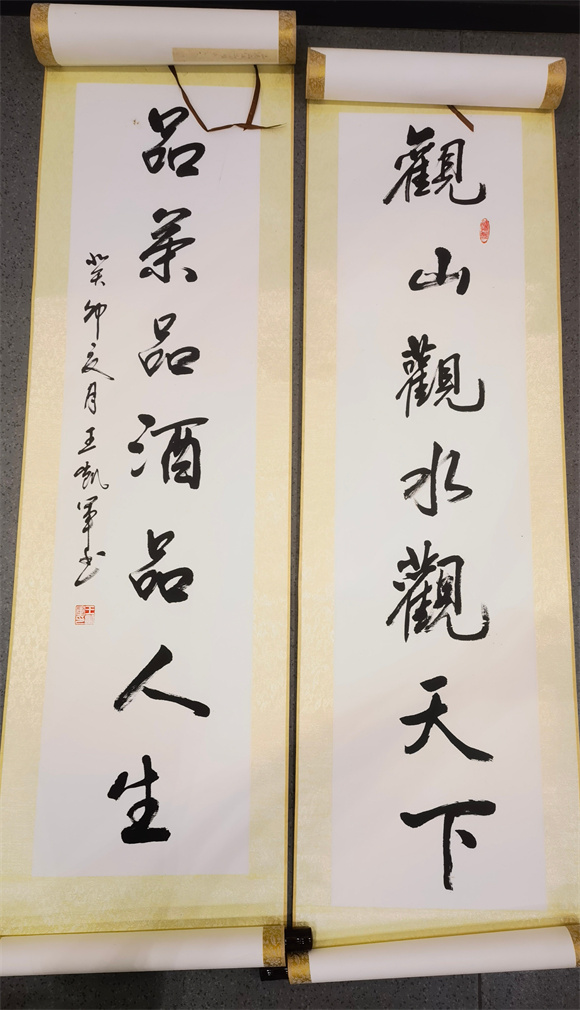 觀山觀水觀天下
品茶品酒品人生
癸卯之月王凱軍书